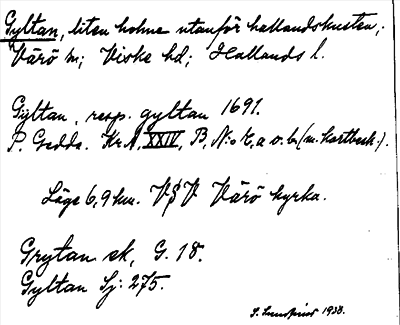 Gyltan, liten holme utanför hallandskusten;
Värö sn; Viske hd; Hallands l.
Gyltan, resp. gyltan 1691.
P. Gedda. Kr.A. XXIV, B, N:o 7, a o. b. (m. kartbesk.).
Läge 6,9 km. VSV Värö kyrka.
Grytan sk, G. 18.
Gyltan Sj: 275.
1933.